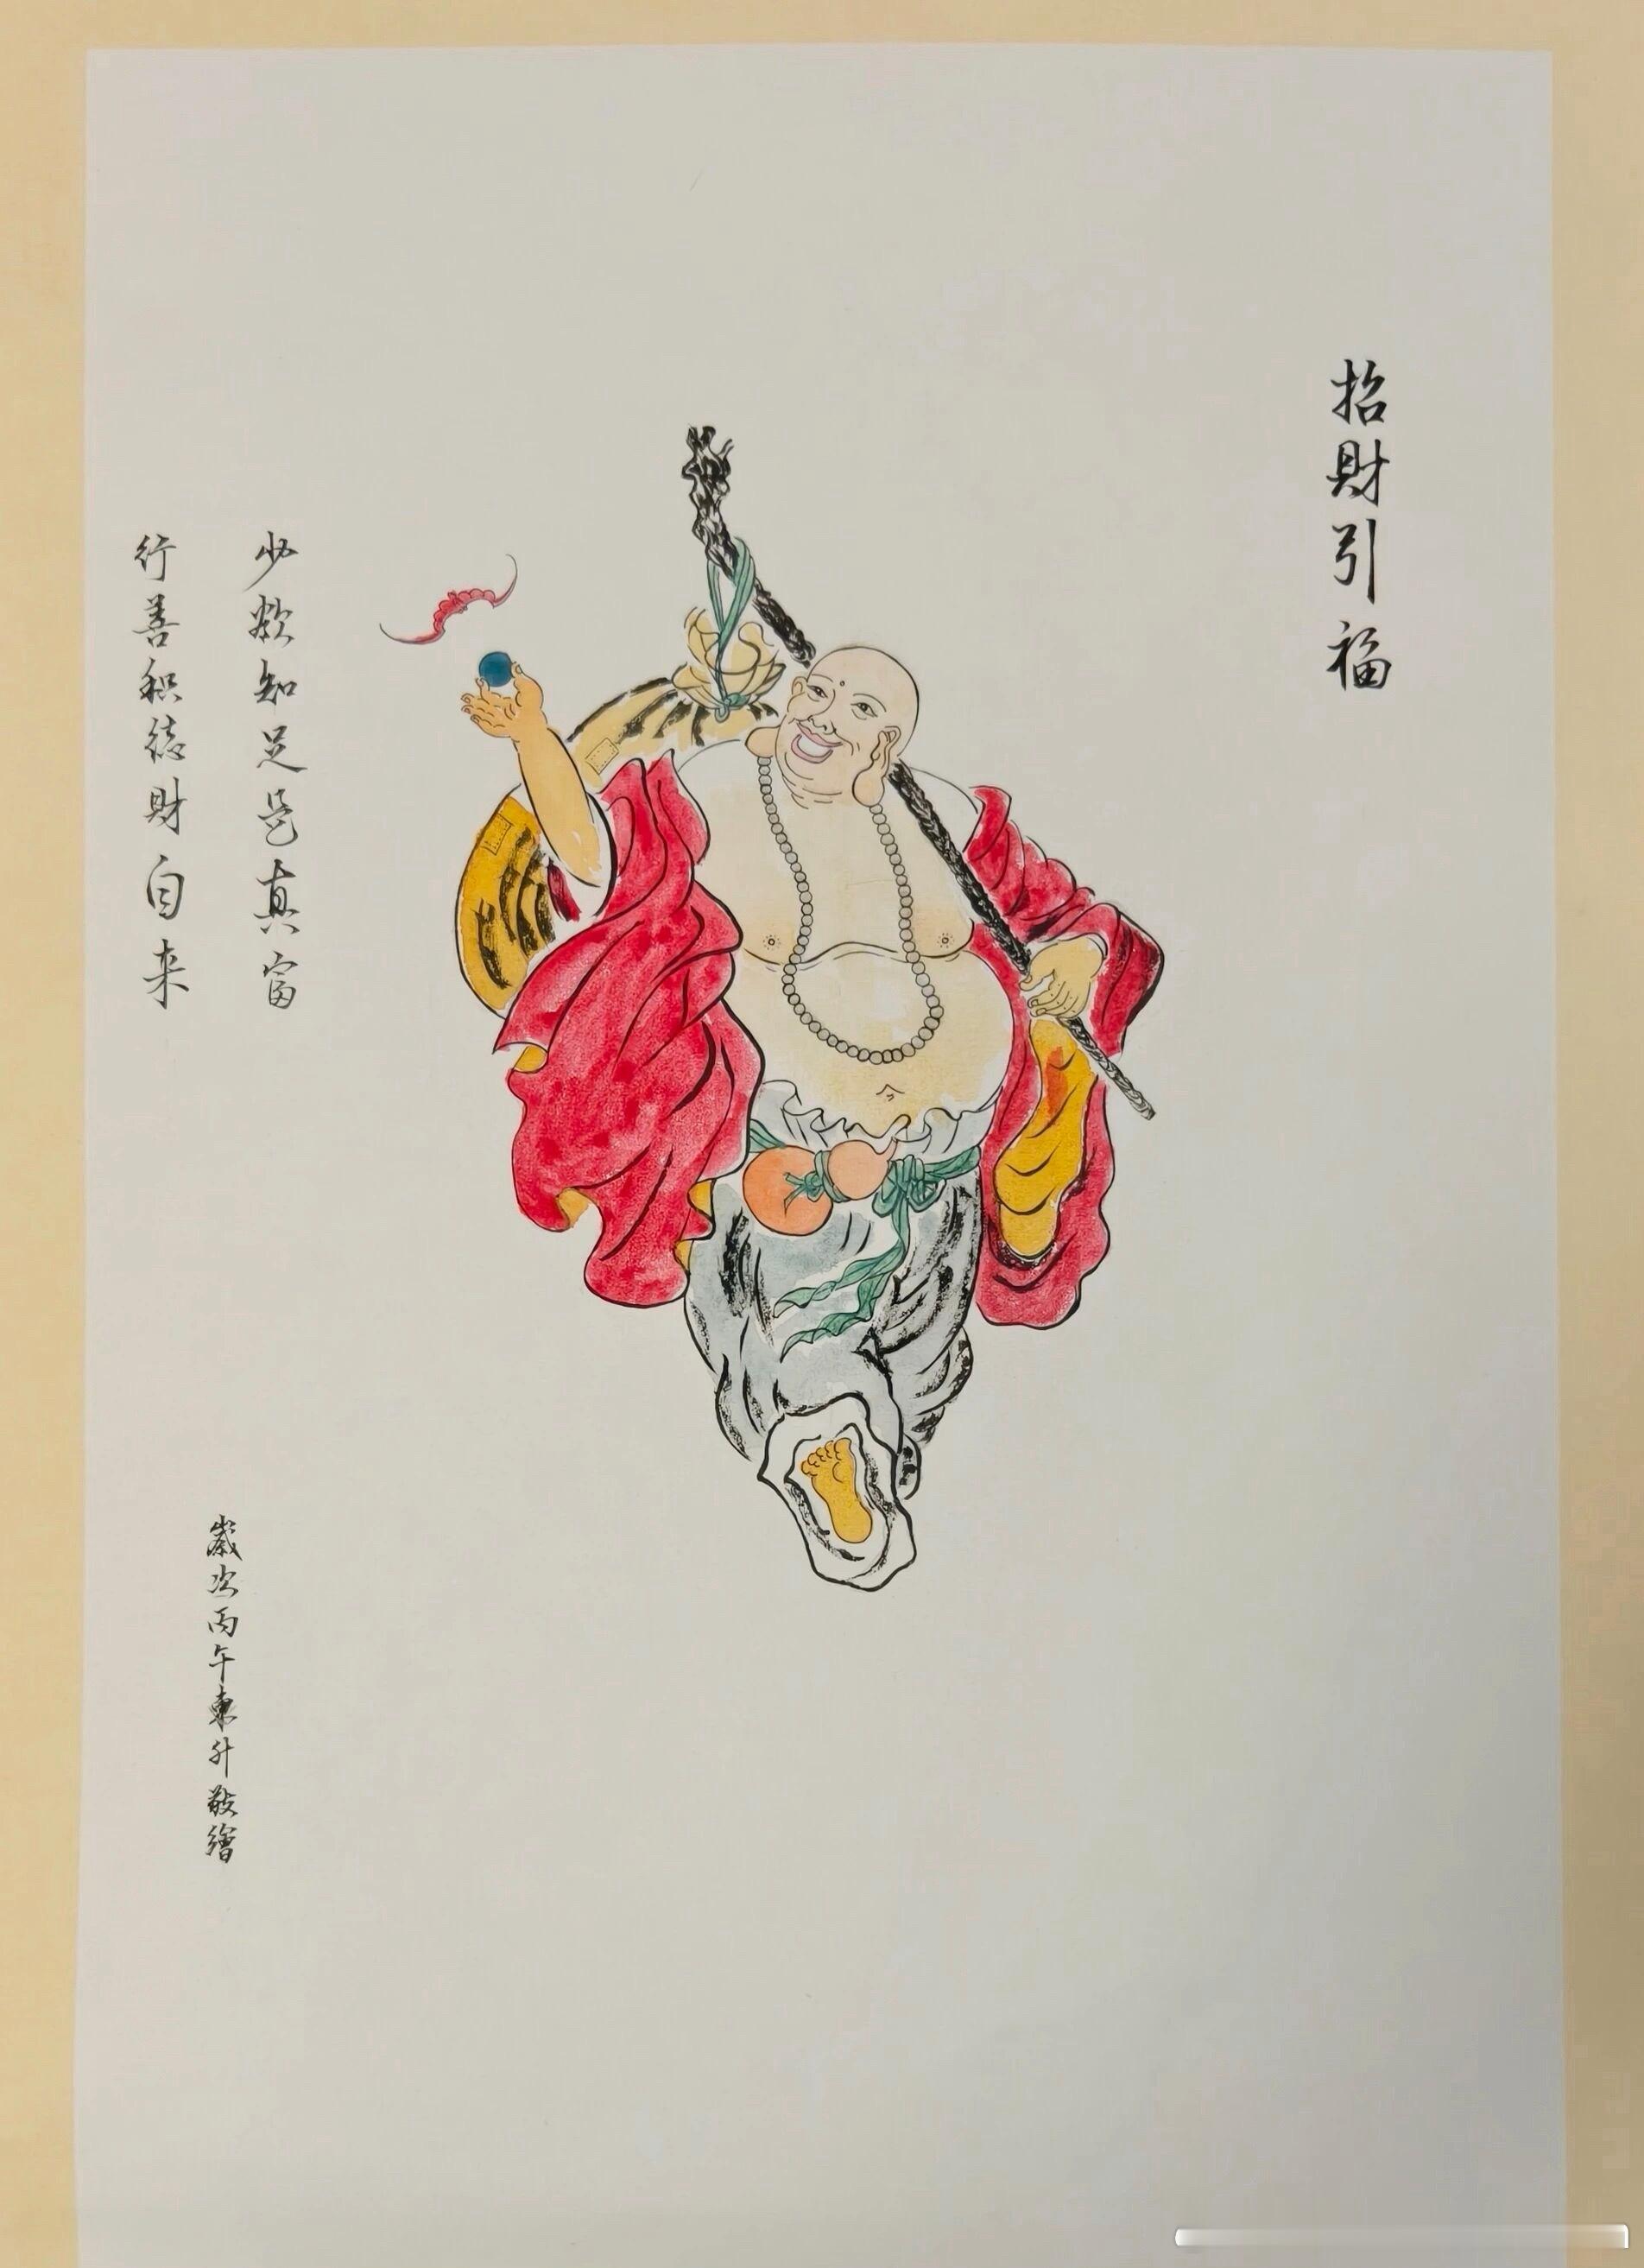 招財引福
少欲知足是真富
行善积德財自来
歲次丙午東升敬繪